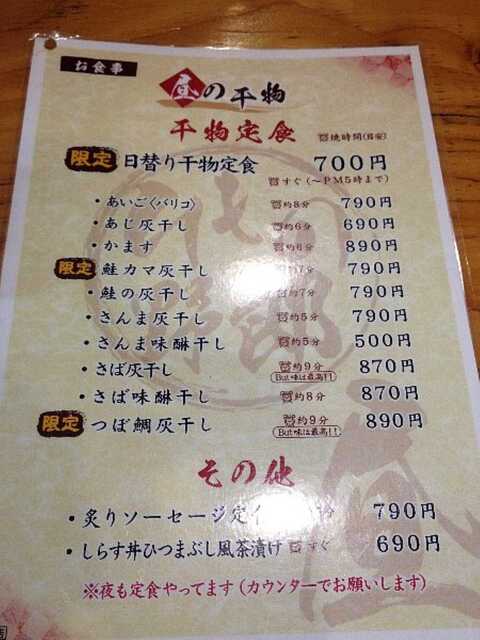 お食事
昼の干物
干物定食 焼時間(目安)
限定 日替り干物定食 700円
すぐ(～PM5時まで)
・あいご〈バリコ〉 約8分 790円
・あじ灰干し 約6分 690円
・かます 約6分 890円
限定 鮭カマ灰干し 約7分 790円
・鮭の灰干し 約7分 790円
・さんま灰干し 約5分 790円
・さんま味醂干し 約5分 500円
・さば灰干し 約9分 870円
But味は最高!!
・さば味醂干し 約8分 870円
限定 つぼ鯛灰干し 約9分 890円
But味は最高!!
その他
・炙りソーセージ定 分 790円
・しらす丼ひつまぶし風茶漬け すぐ 690円
※夜も定食やってます(カウンターでお願いします)